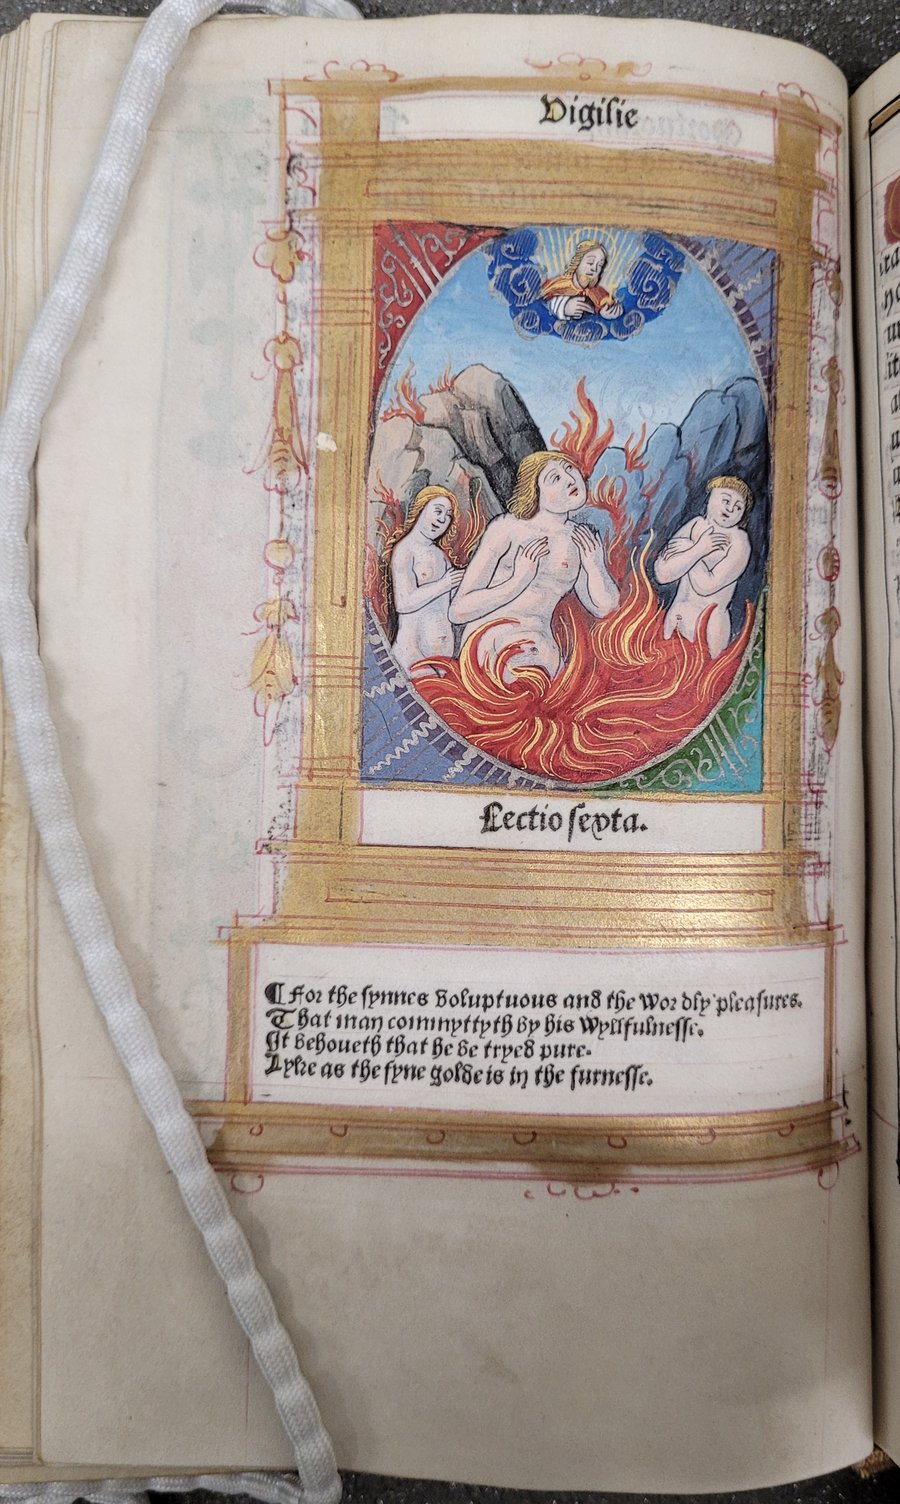 Vigilie
Lectio septa.
¶ For the synnes voluptuous and the wordly pleasures.
That man commyttyth by his wyllfulnesse.
It behoueth that he be tryed pure.
Lyke as the fyne golde is in the furnesse.